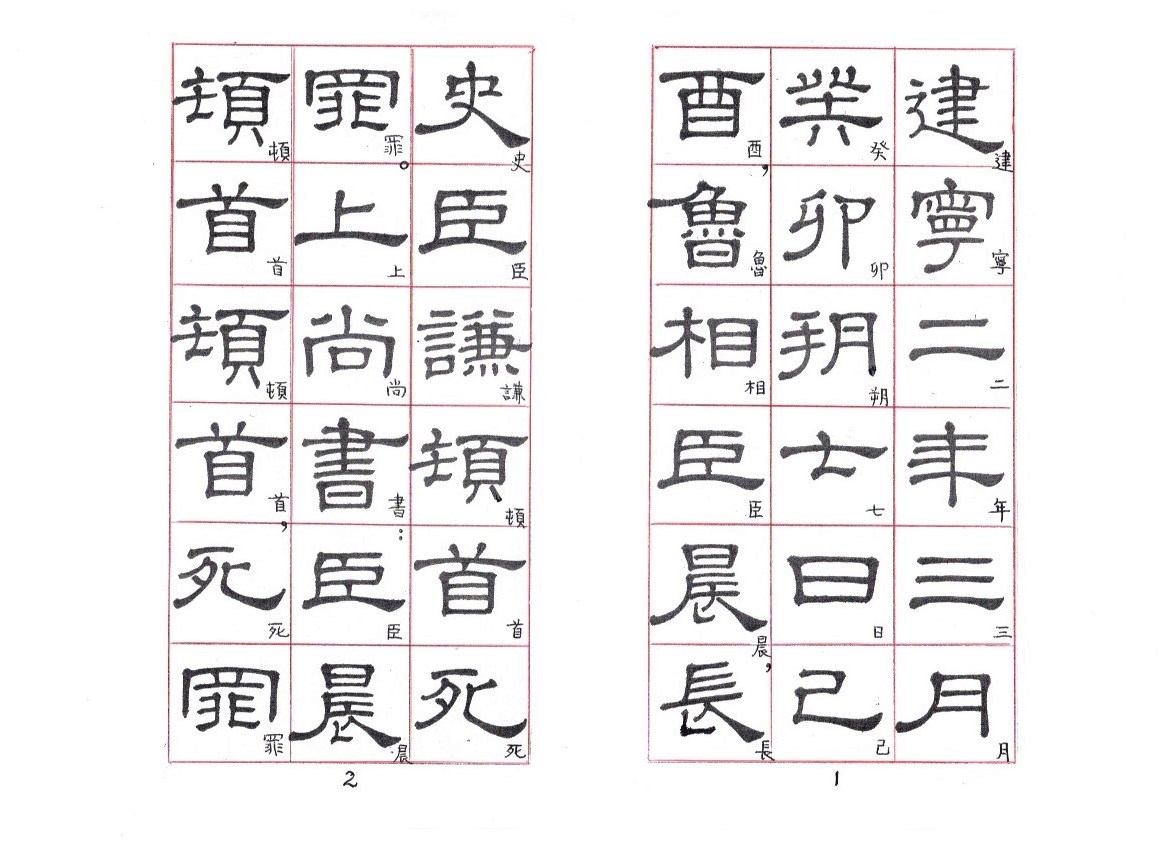 建寧二年三月
建寧二年三月
癸卯朔七日己
癸卯朔七日己
酉魯相臣晨長
酉，魯相臣晨，長
1
史臣謙頓首死
史臣謙頓首死
罪上尚書臣晨
罪。上尚書：臣晨
頓首頓首死罪
頓首頓首，死罪
2